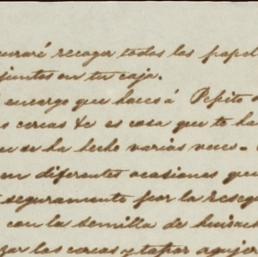 uraré recoger todos los papel
juntos en tu caja.
encargo que haces á Pepito
as cercas &c es cosa que te ha
se ha hecho varias veces.
en diferentes ocasiones que
seguramente por la reseq
con la semilla de huisach
zar las cercas y tapar agujer